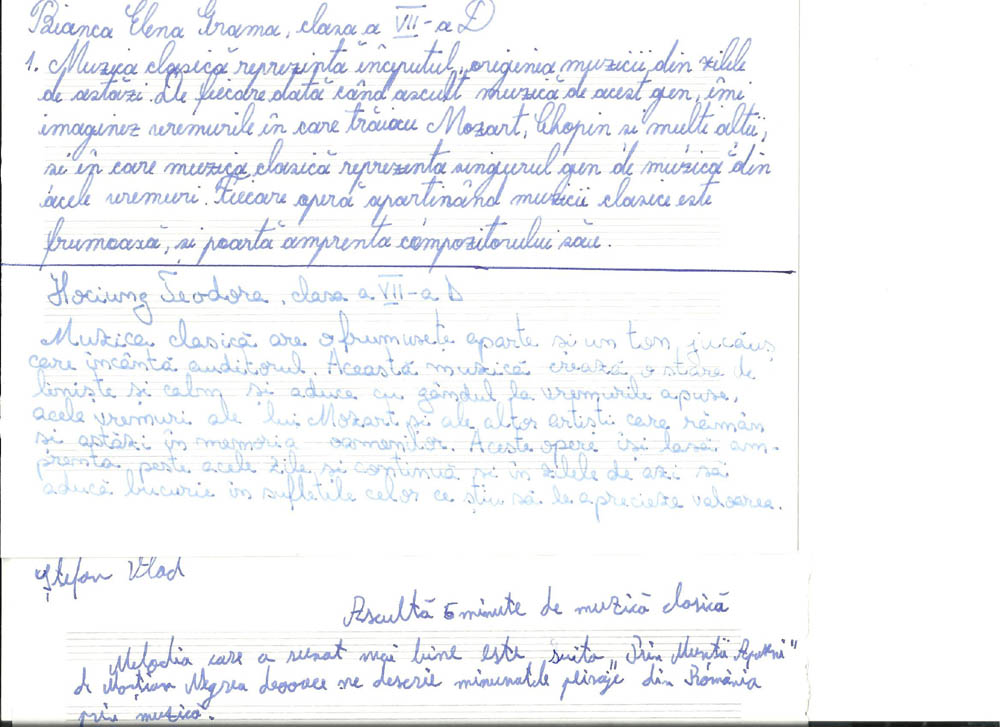 Bianca Elena Grama, clasa a VII-a D
1. Muzica clasică reprezintă înciputul, originea muzicii din zilele
de astăzi. De fiecare dată când ascult muzică de acest gen, îmi
imaginez vremurile în care trăiau Mozart, Chopin si multi altii,
si în care muzica clasică reprezenta singurul gen de muzică din
acele vremuri. Fiecare operă apartinând muzicii clasice este
frumoasă, și poartă amprenta compozitorului său.
Hociung Teodora, clasa a VII-a D
Muzica clasică are o frumusețe aparte si un ton jucăuș
care încântă auditorul. Această muzică crează o stare de
liniște si calm si aduce cu gândul la vremurile apuse,
acele vremuri ale lui Mozart și ale altor artisti care rămân
si astăzi în memoria oamenilor. Aceste opere isi lasă am-
prenta peste acele zile si continuă si în zilele de azi să
aducă bucurie in sufletile celor ce știu să le aprecieze valoarea.
Ștefan Vlad
Ascultă 5 minute de muzică clasică
Melodia care a sunat mai bine este suita "Prin Munții Apuseni"
de Marțian Negrea deoarece ne descrie minunatele peisaje din România
prin muzică.